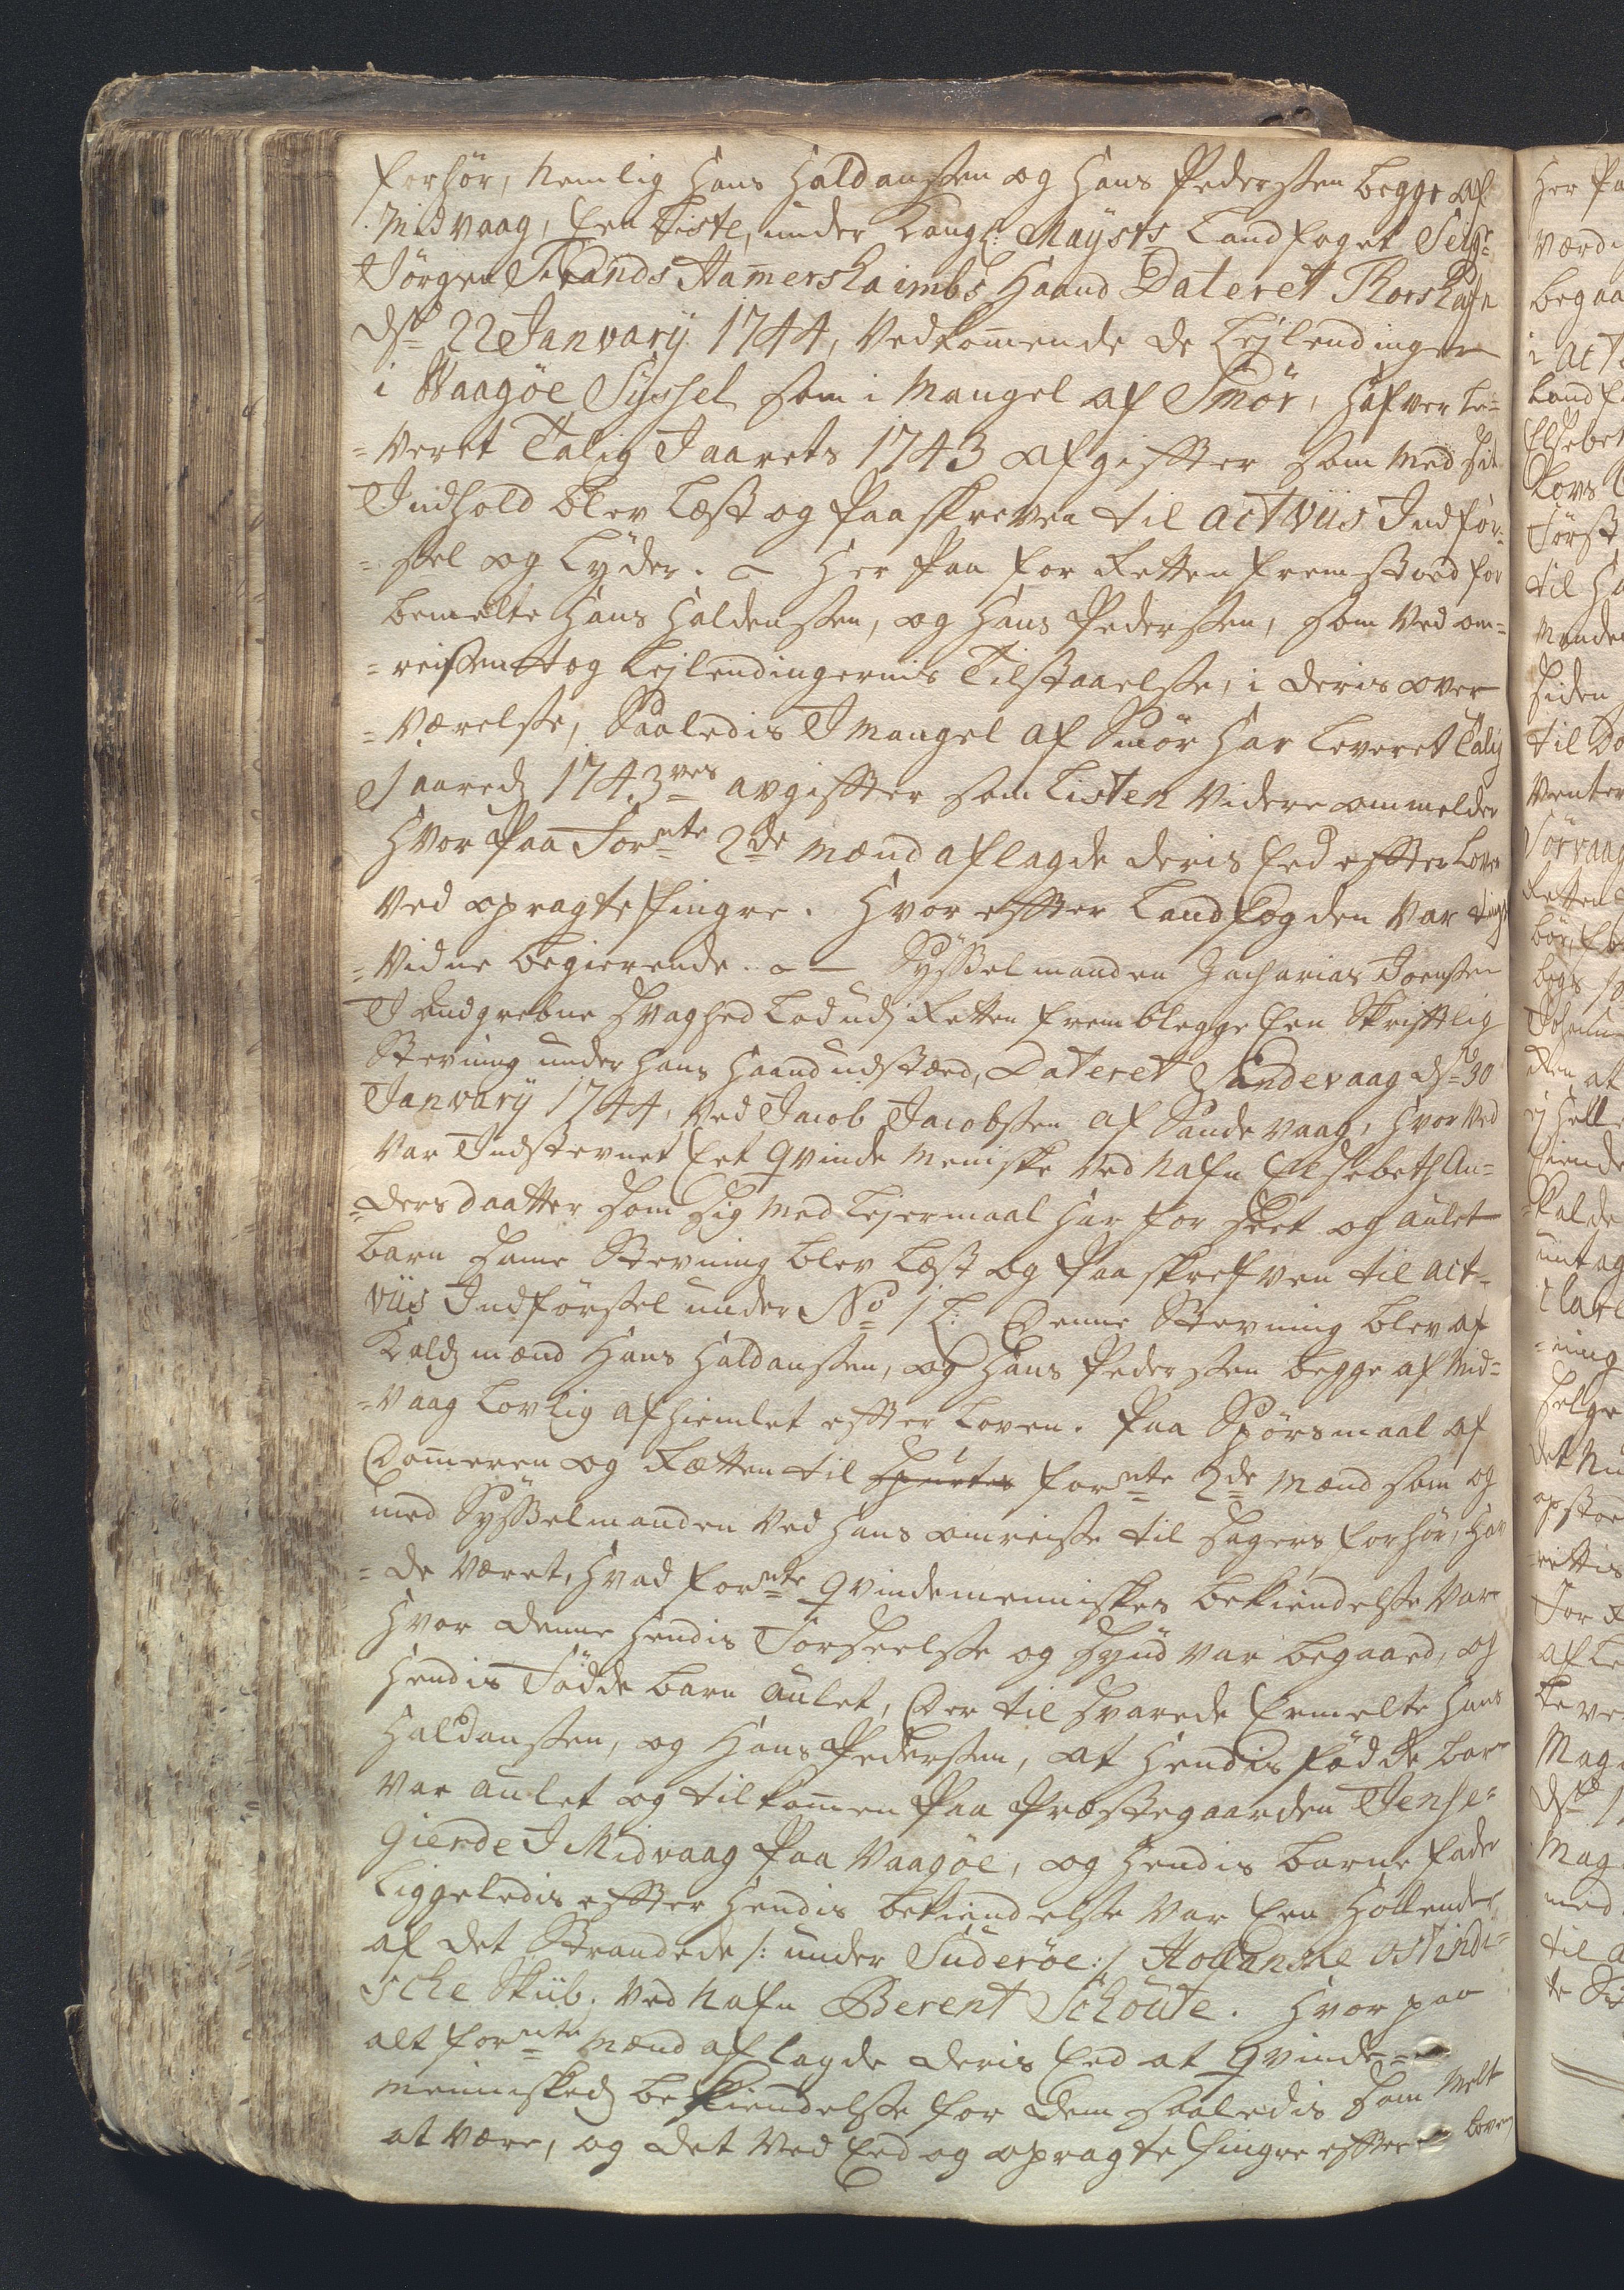 forhör, Nemlig Hans Haldanssen og Hans Pederssen begge af
Midvaag, Een Liste, under Kongl: Maÿsts Landfoget Seigr
Jörgen Frands Hamershaimbs Haand Dateret Thorshafn
dn 22 Janvarÿ 1744, Vedkommende de Lejlendinger
i Waagöe Syssel som i Mangel af Smör, Hafver Le-
=veret Talig I aarets 1743 afgiffter som med sit
Indhold blev Læst og Paaskreven til actvüs Indför-
=sel og Lyder. Her Paa for Retten fremstoed for
bemelte Hans Haldenssen, og Hans Pederssen, som Ved om-
=reissen og Lejlendingernis Tilstaaelsse, i deris over
=Værelsse, Saaledis I mangel af Smör Har Leveret Talig
I aared 1743ves avgiffter som Listen Videre ommelder
Hvor Paa Fornte 2de mænd aflagde deris Eed effter Loven
Ved opragte fingre. Hvor effter Landfogden Var tings
=Vidne begierende. Sysselmanden Zacharias Joenssen
I svaghed Lod udj Retten fremblegge Een Skrifftlig
Stevning under Hans Haand udstæd, Dateret Sandevaag dn 30
Janvarÿ 1744, ved Jacob Jacobssen af Sandevaag, Hvor Ved
Var Indstevnet Eet qvinde Meniske Ved Nafn Elsebeth An-
=dersdaatter som sig med Lejermaal Har for seet og aulet
barn samme Stevning blev Læst og Paaskrefven til act-
vüs Indförssel under No 1 L: Denne Stevning blev af
Kaldsmænd Hans Haldanssen, og Hans Pederssen begge af Mid-
=vaag Lovlig afhiemlet effter Loven. Paa Spörsmaal af
Dommeren og Rætten til spurtes fornte 2de Mænd som og
med Sysselmanden Ved Hans omreisse til sagers forhör, Hav
=de Været, Hvad fornte qvindemenniskes bekiendelsse Var
Hvor denne Hendis Forseelsse og synd Var begaaed, og
Hendis Födde barn aulet, Der til svarede Ermelte Hans
Haldanssen, og Hans Pederssen, at Hendis födde barn
Var aulet og tilkommen Paa Præstegaarden Jense-
gierde I Midvaag Paa Vaagöe, og Hendis barne fader
Liggeledis effter Hendis bekiendelsse Var Een Hollender,
af det Strandede /: under Suderöe :/ Hollanske ostindi-
sche Skiib. Ved Nafn Berent Schoute. Hvor paa
alt fornte Mænd aflagde deris Eed at qvinde-
menniskes bekiendelsse for dem saaledis som melt
at være, og det Ved Eed og opragte fingre effter loven